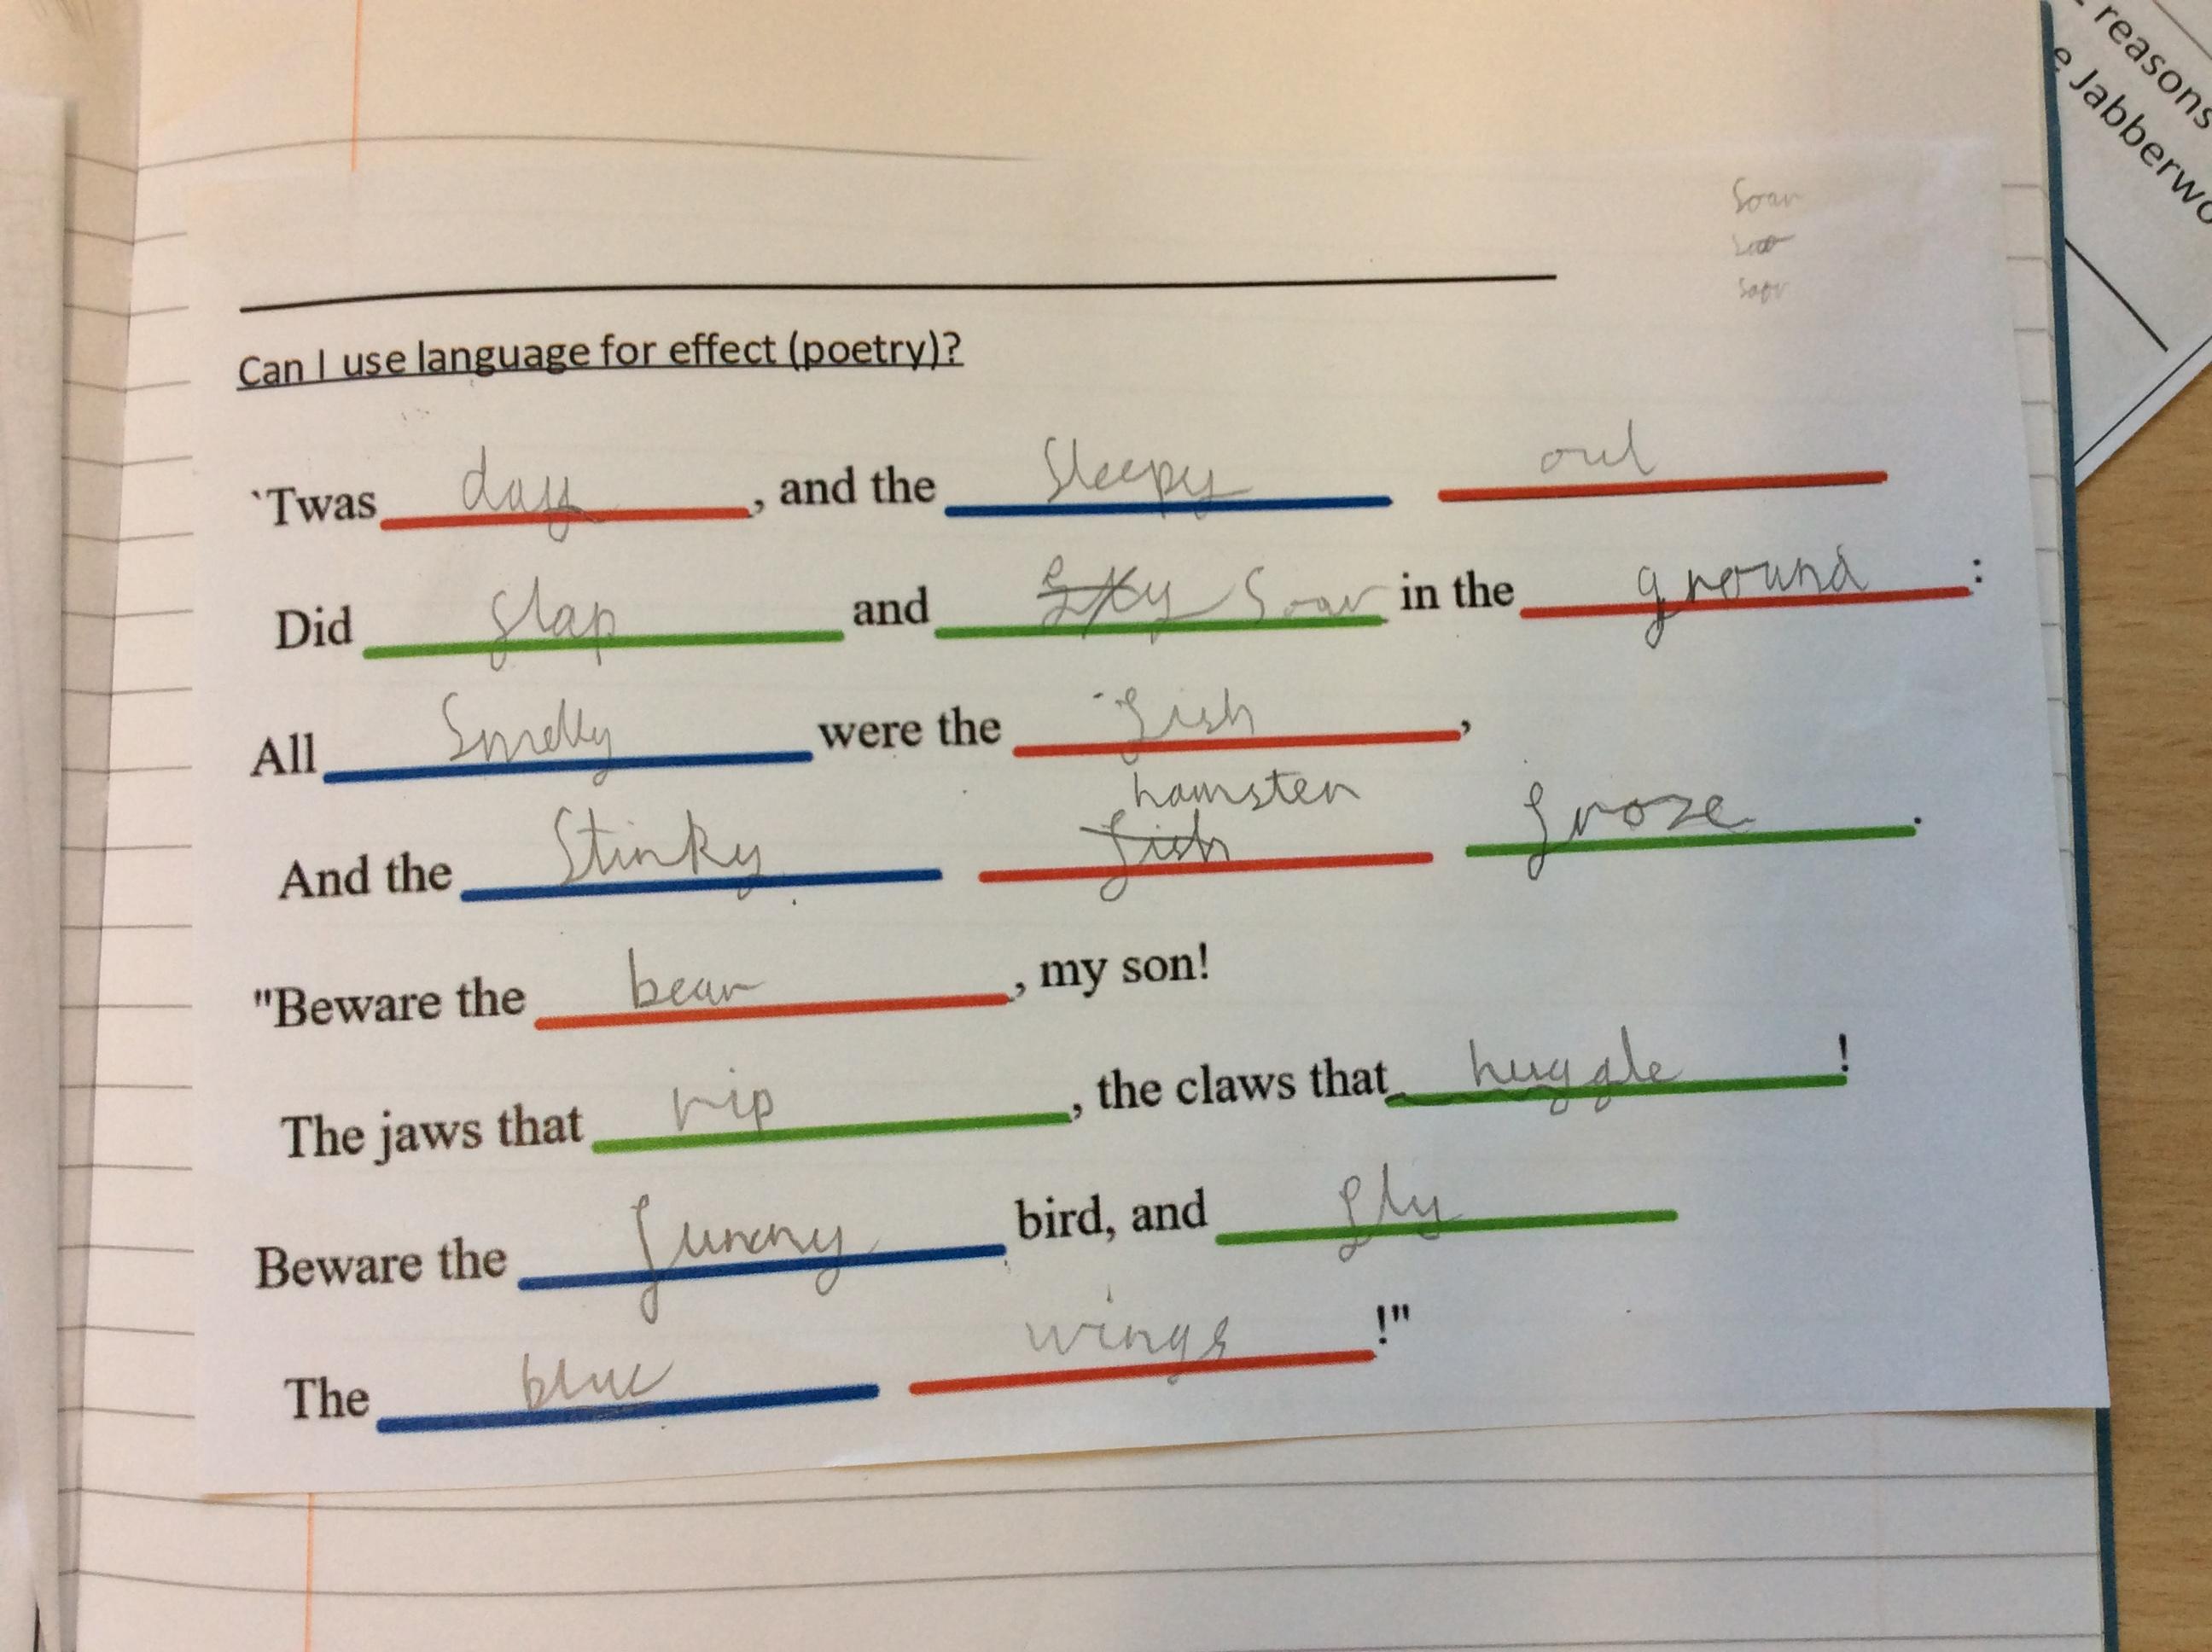 reasons
e Jabberwo
Soar
Soar
Can I use language for effect (poetry)?
`Twas day, and the sleepy owl
Did flap and fly Soar in the ground:
All Smelly were the fish,
hamster
And the Stinky fish froze.
"Beware the bear, my son!
The jaws that rip, the claws that huggle!
Beware the funny bird, and fly
The blue wings!"